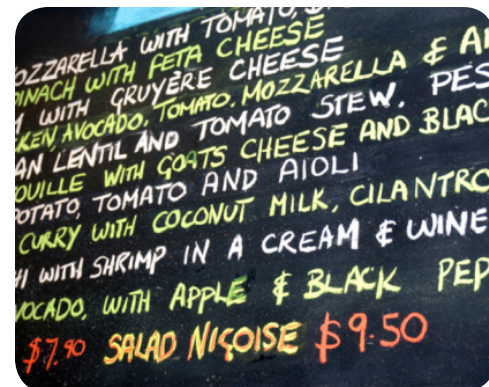 OZZARELLA WITH TOMATO,
INACH WITH FETA CHEESE
WITH GRUYÈRE CHEESE
KEN, AVOCADO, TOMATO, MOZZARELLA & A
AN LENTIL AND TOMATO STEW. PES
OUILLE WITH GOATS CHEESE AND BLAC
POTATO, TOMATO AND AIOLI
CURRY WITH COCONUT MILK, CILANTRO
HI WITH SHRIMP IN A CREAM & WINE
VOCADO, WITH APPLE & BLACK PEP
$7.90 SALAD NIÇOISE $9.50